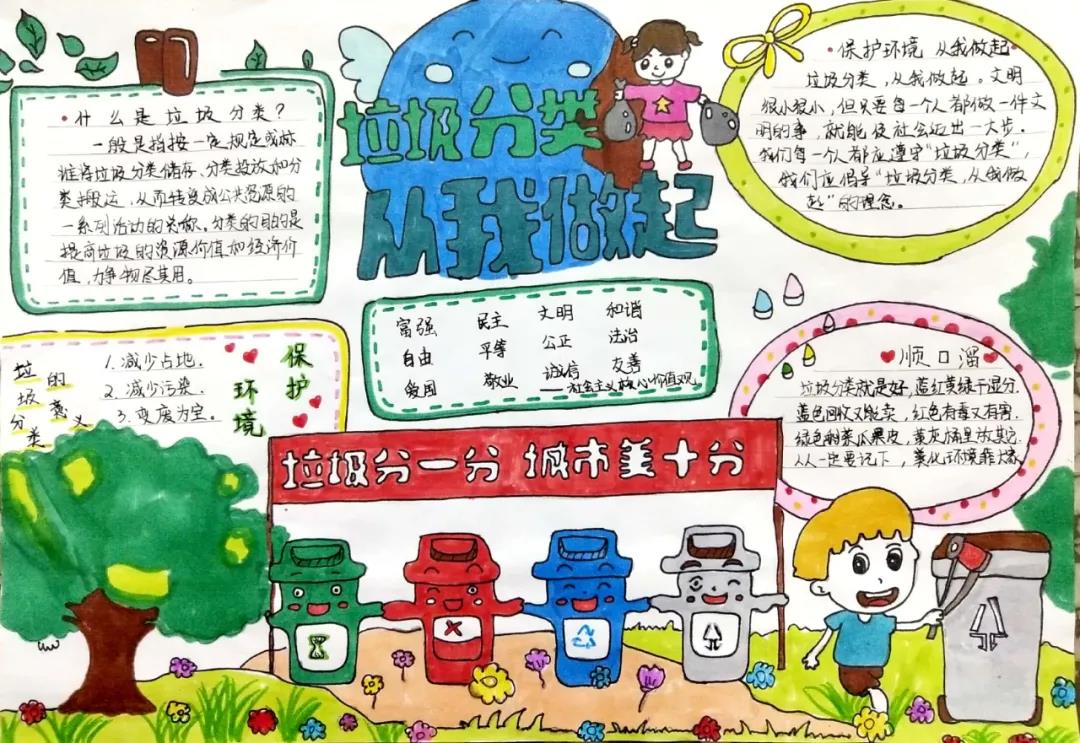 垃圾分类
从我做起
·什么是垃圾分类?
一般是指按一定规定或标
准将垃圾分类储存、分类投放和分
类搬运,从而转变成公共资源的
一系列活动的总称。分类的目的是
提高垃圾的资源价值和经济价
值,力争物尽其用。
·保护环境 从我做起·
垃圾分类,从我做起。文明
很小很小,但只要每一个人都做一件文
明的事,就能使社会迈出一大步。
我们每一个人都应遵守“垃圾分类”,
我们应倡导“垃圾分类,从我做
起”的理念。
富强 民主 文明 和谐
自由 平等 公正 法治
爱国 敬业 诚信 友善
——社会主义核心价值观
垃圾分类
的意义
1.减少占地.
2.减少污染.
3.变废为宝.
保护
环境
顺口溜
垃圾分类就是好,蓝红黄绿干湿分.
蓝色回收又能卖,红色有毒又有害.
绿色的菜瓜果皮,黄灰桶里放其它.
人人一定要记下,美化环境靠大家
垃圾分一分 城市美十分